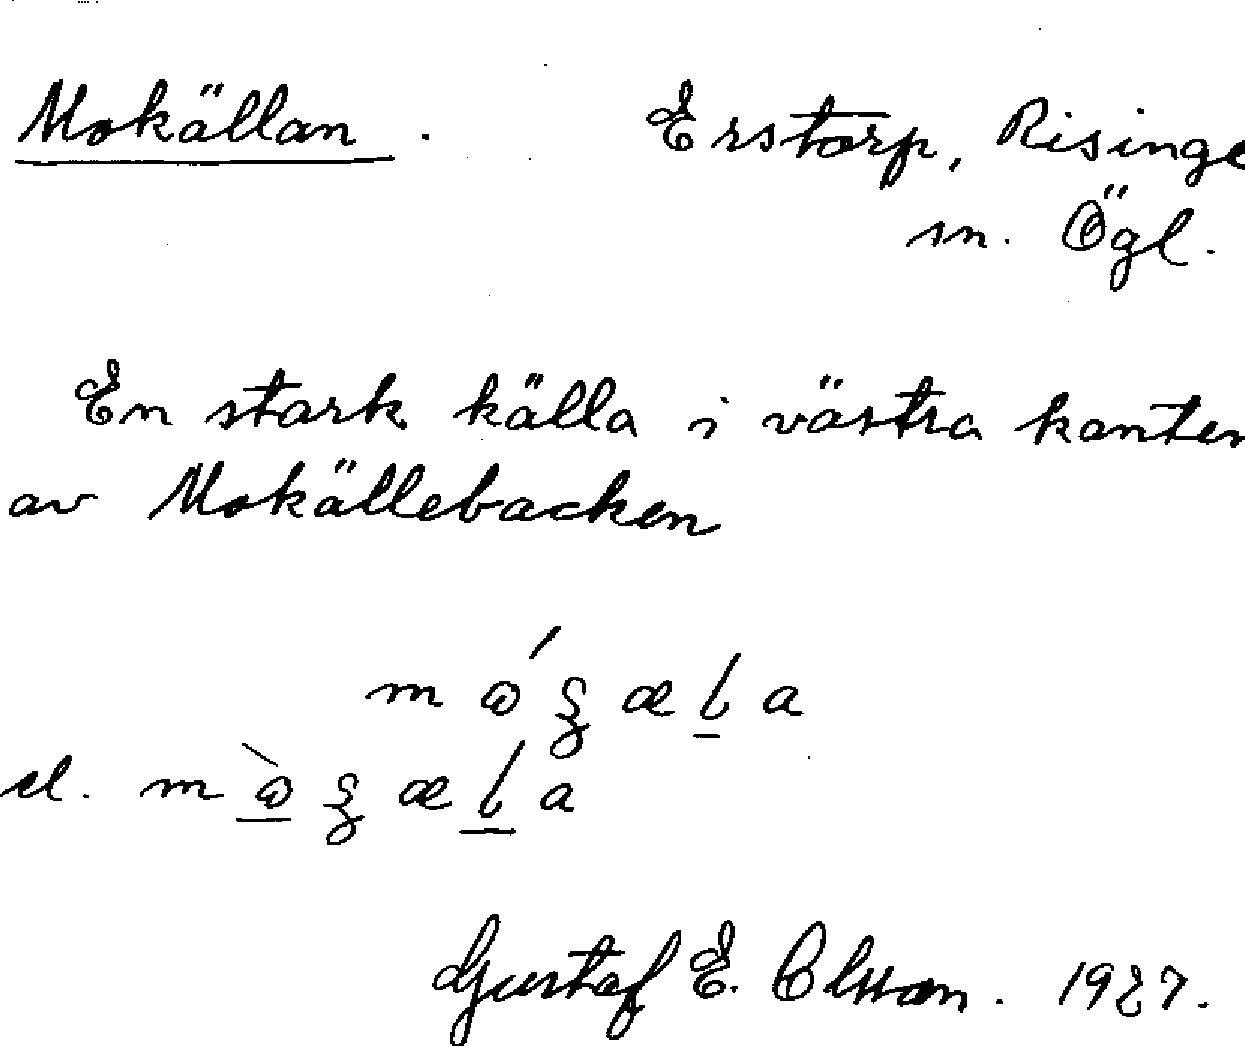 Mokällan. Erstorp, Risinge
sn. Ögl.
En stark källa i västra kanten
av Mokällebacken
el.
Gustaf E. Olsson. 1927.